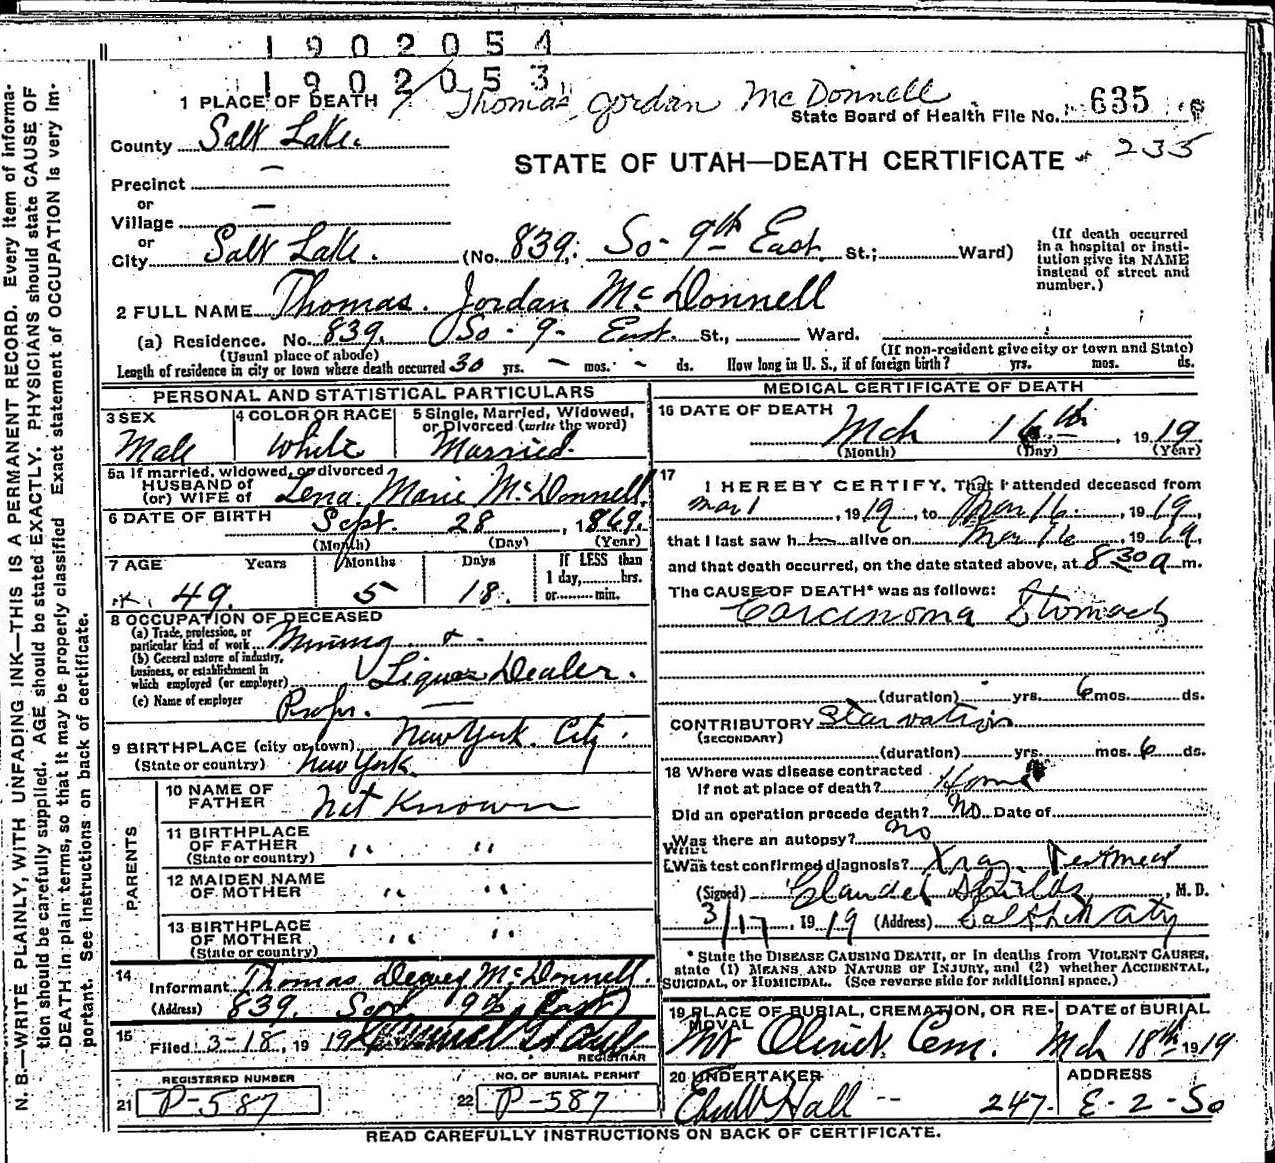 1902054
1902053
Thomas Jordan McDonnell
1 PLACE OF DEATH
State Board of Health File No. 635
County Salt Lake.
STATE OF UTAH—DEATH CERTIFICATE 235
Precinct —
or
Village —
or
City Salt Lake. (No. 839. So- 9th East. St.; Ward)
(If death occurred in a hospital or insti-
tution give its NAME
instead of street and
number.)
2 FULL NAME Thomas. Jordan McDonnell
(a) Residence. No. 839. So - 9 - East. St., Ward.
(Usual place of abode) (If non-resident give city or town and State)
Length of residence in city or town where death occurred 30 yrs. — mos. - ds. How long in U. S., if of foreign birth? yrs. mos. ds.
PERSONAL AND STATISTICAL PARTICULARS
3 SEX
Male
4 COLOR OR RACE
White
5 Single, Married, Widowed,
or Divorced (write the word)
Married.
5a If married, widowed, or divorced
HUSBAND of
(or) WIFE of Lena Marie McDonnell
6 DATE OF BIRTH Sept. 28, 1869.
(Month) (Day) (Year)
7 AGE Years Months Days If LESS than
1 day, hrs.
or min.
49. 5 18.
8 OCCUPATION OF DECEASED
(a) Trade, profession, or
particular kind of work Mining &
(b) General nature of industry,
business, or establishment in
which employed (or employer) Liquor Dealer.
(c) Name of employer Propr. —
9 BIRTHPLACE (city or town) New York City.
(State or country) New York.
PARENTS
10 NAME OF
FATHER Not Known
11 BIRTHPLACE
OF FATHER
(State or country) " "
12 MAIDEN NAME
OF MOTHER " "
13 BIRTHPLACE
OF MOTHER
(State or country) " "
14
Informant Thomas Dewey McDonnell.
(Address) 839. South 9th East
15
Filed 3-18, 1919
REGISTRAR
REGISTERED NUMBER
21 P-587
NO. OF BURIAL PERMIT
22 P-587
MEDICAL CERTIFICATE OF DEATH
16 DATE OF DEATH
Mch 16th, 1919
(Month) (Day) (Year)
17
I HEREBY CERTIFY, That I attended deceased from
Mar 1, 1919, to Mar 16, 1919,
that I last saw him alive on Mar 16, 1919,
and that death occurred, on the date stated above, at 8 30 a m.
The CAUSE OF DEATH* was as follows:
Carcinoma Stomach
(duration) yrs. 6 mos. ds.
CONTRIBUTORY Starvation
(SECONDARY)
(duration) yrs. mos. 6 ds.
18 Where was disease contracted
If not at place of death? Home
Did an operation precede death? No Date of
Was there an autopsy? no
What
Was test confirmed diagnosis? Xray
(Signed) Shields, M. D.
3/17, 1919 (Address) Salt Lake City
* State the DISEASE CAUSING DEATH, or in deaths from VIOLENT CAUSES,
state (1) MEANS AND NATURE OF INJURY, and (2) whether ACCIDENTAL,
SUICIDAL, or HOMICIDAL. (See reverse side for additional space.)
19 PLACE OF BURIAL, CREMATION, OR RE-
MOVAL
Mt Olivet Cem.
DATE OF BURIAL
Mch 18th 1919
20 UNDERTAKER
Hall --
ADDRESS
247. E - 2 - So
READ CAREFULLY INSTRUCTIONS ON BACK OF CERTIFICATE.
N. B.—WRITE PLAINLY, WITH UNFADING INK—THIS IS A PERMANENT RECORD. Every item of informa-
tion should be carefully supplied. AGE should be stated EXACTLY. PHYSICIANS should state CAUSE OF
DEATH in plain terms, so that it may be properly classified. Exact statement of OCCUPATION is very im-
portant. See Instructions on back of certificate.